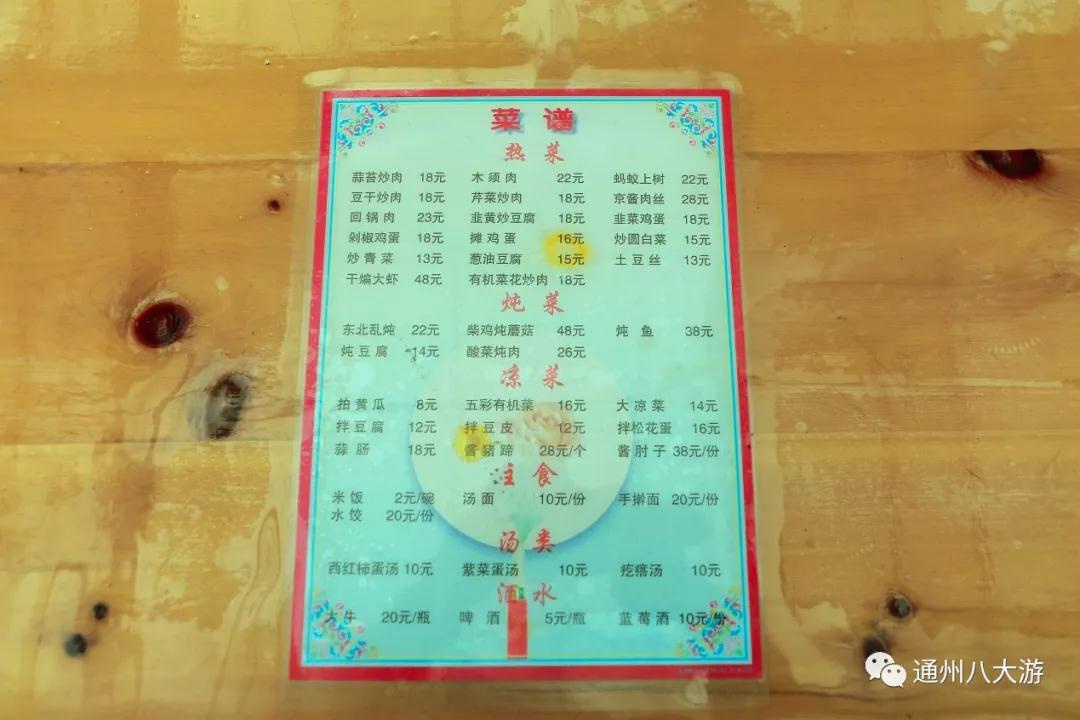 菜 谱
热 菜
蒜苔炒肉 18元 木须肉 22元 蚂蚁上树 22元
豆干炒肉 18元 芹菜炒肉 18元 京酱肉丝 28元
回锅肉 23元 韭黄炒豆腐 18元 韭菜鸡蛋 18元
剁椒鸡蛋 18元 摊鸡蛋 16元 炒圆白菜 15元
炒青菜 13元 葱油豆腐 15元 土豆丝 13元
干煸大虾 48元 有机菜花炒肉 18元
炖 菜
东北乱炖 22元 柴鸡炖蘑菇 48元 炖鱼 38元
炖豆腐 14元 酸菜炖肉 26元
凉 菜
拍黄瓜 8元 五彩有机菜 16元 大凉菜 14元
拌豆腐 12元 拌豆皮 12元 拌松花蛋 16元
蒜肠 18元 酱猪蹄 28元/个 酱肘子 38元/份
主 食
米饭 2元/碗 汤面 10元/份 手擀面 20元/份
水饺 20元/份
汤 类
西红柿蛋汤 10元 紫菜蛋汤 10元 疙瘩汤 10元
酒 水
大牛 20元/瓶 啤酒 5元/瓶 蓝莓酒 10元/份
通州八大游